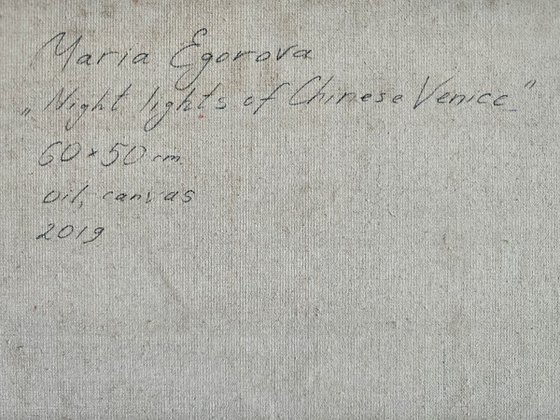 Maria Egorova
„Night lights of Chinese Venice"
60×50 cm
oil, canvas
2019